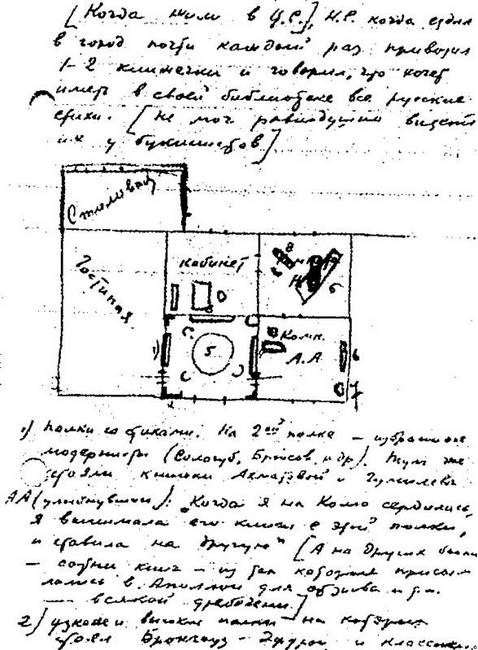 [Когда жили в Ц.С.], Н.Г. когда ездил
в город почти каждый раз привозил
1-2 книжечки и говорил, что хочет
иметь в своей библиотеке все русские
стихи. [Не мог равнодушно видеть
их у букинистов]
Столовая
Гостиная
кабинет
8
6
Н
5
1)
5
Комн.
А.А
6
7
1) полки со стихами. На 2ой полке — избранные
модернисты (Сологуб, Брюсов и др). Тут же
стояли книжки Ахматовой и Гумилева
АА (улыбнувшись): „Когда я на Колю сердилась,
я вынимала его книги с этой полки,
и ставила на другую" [А на других были
— сотни книг — из тех которые присы
лались в Аполлон для отзыва и т.п.
— всякой дребедени]
2) узкие и высокие полки на которых
стоял Брокгауз-Эфрон и классики